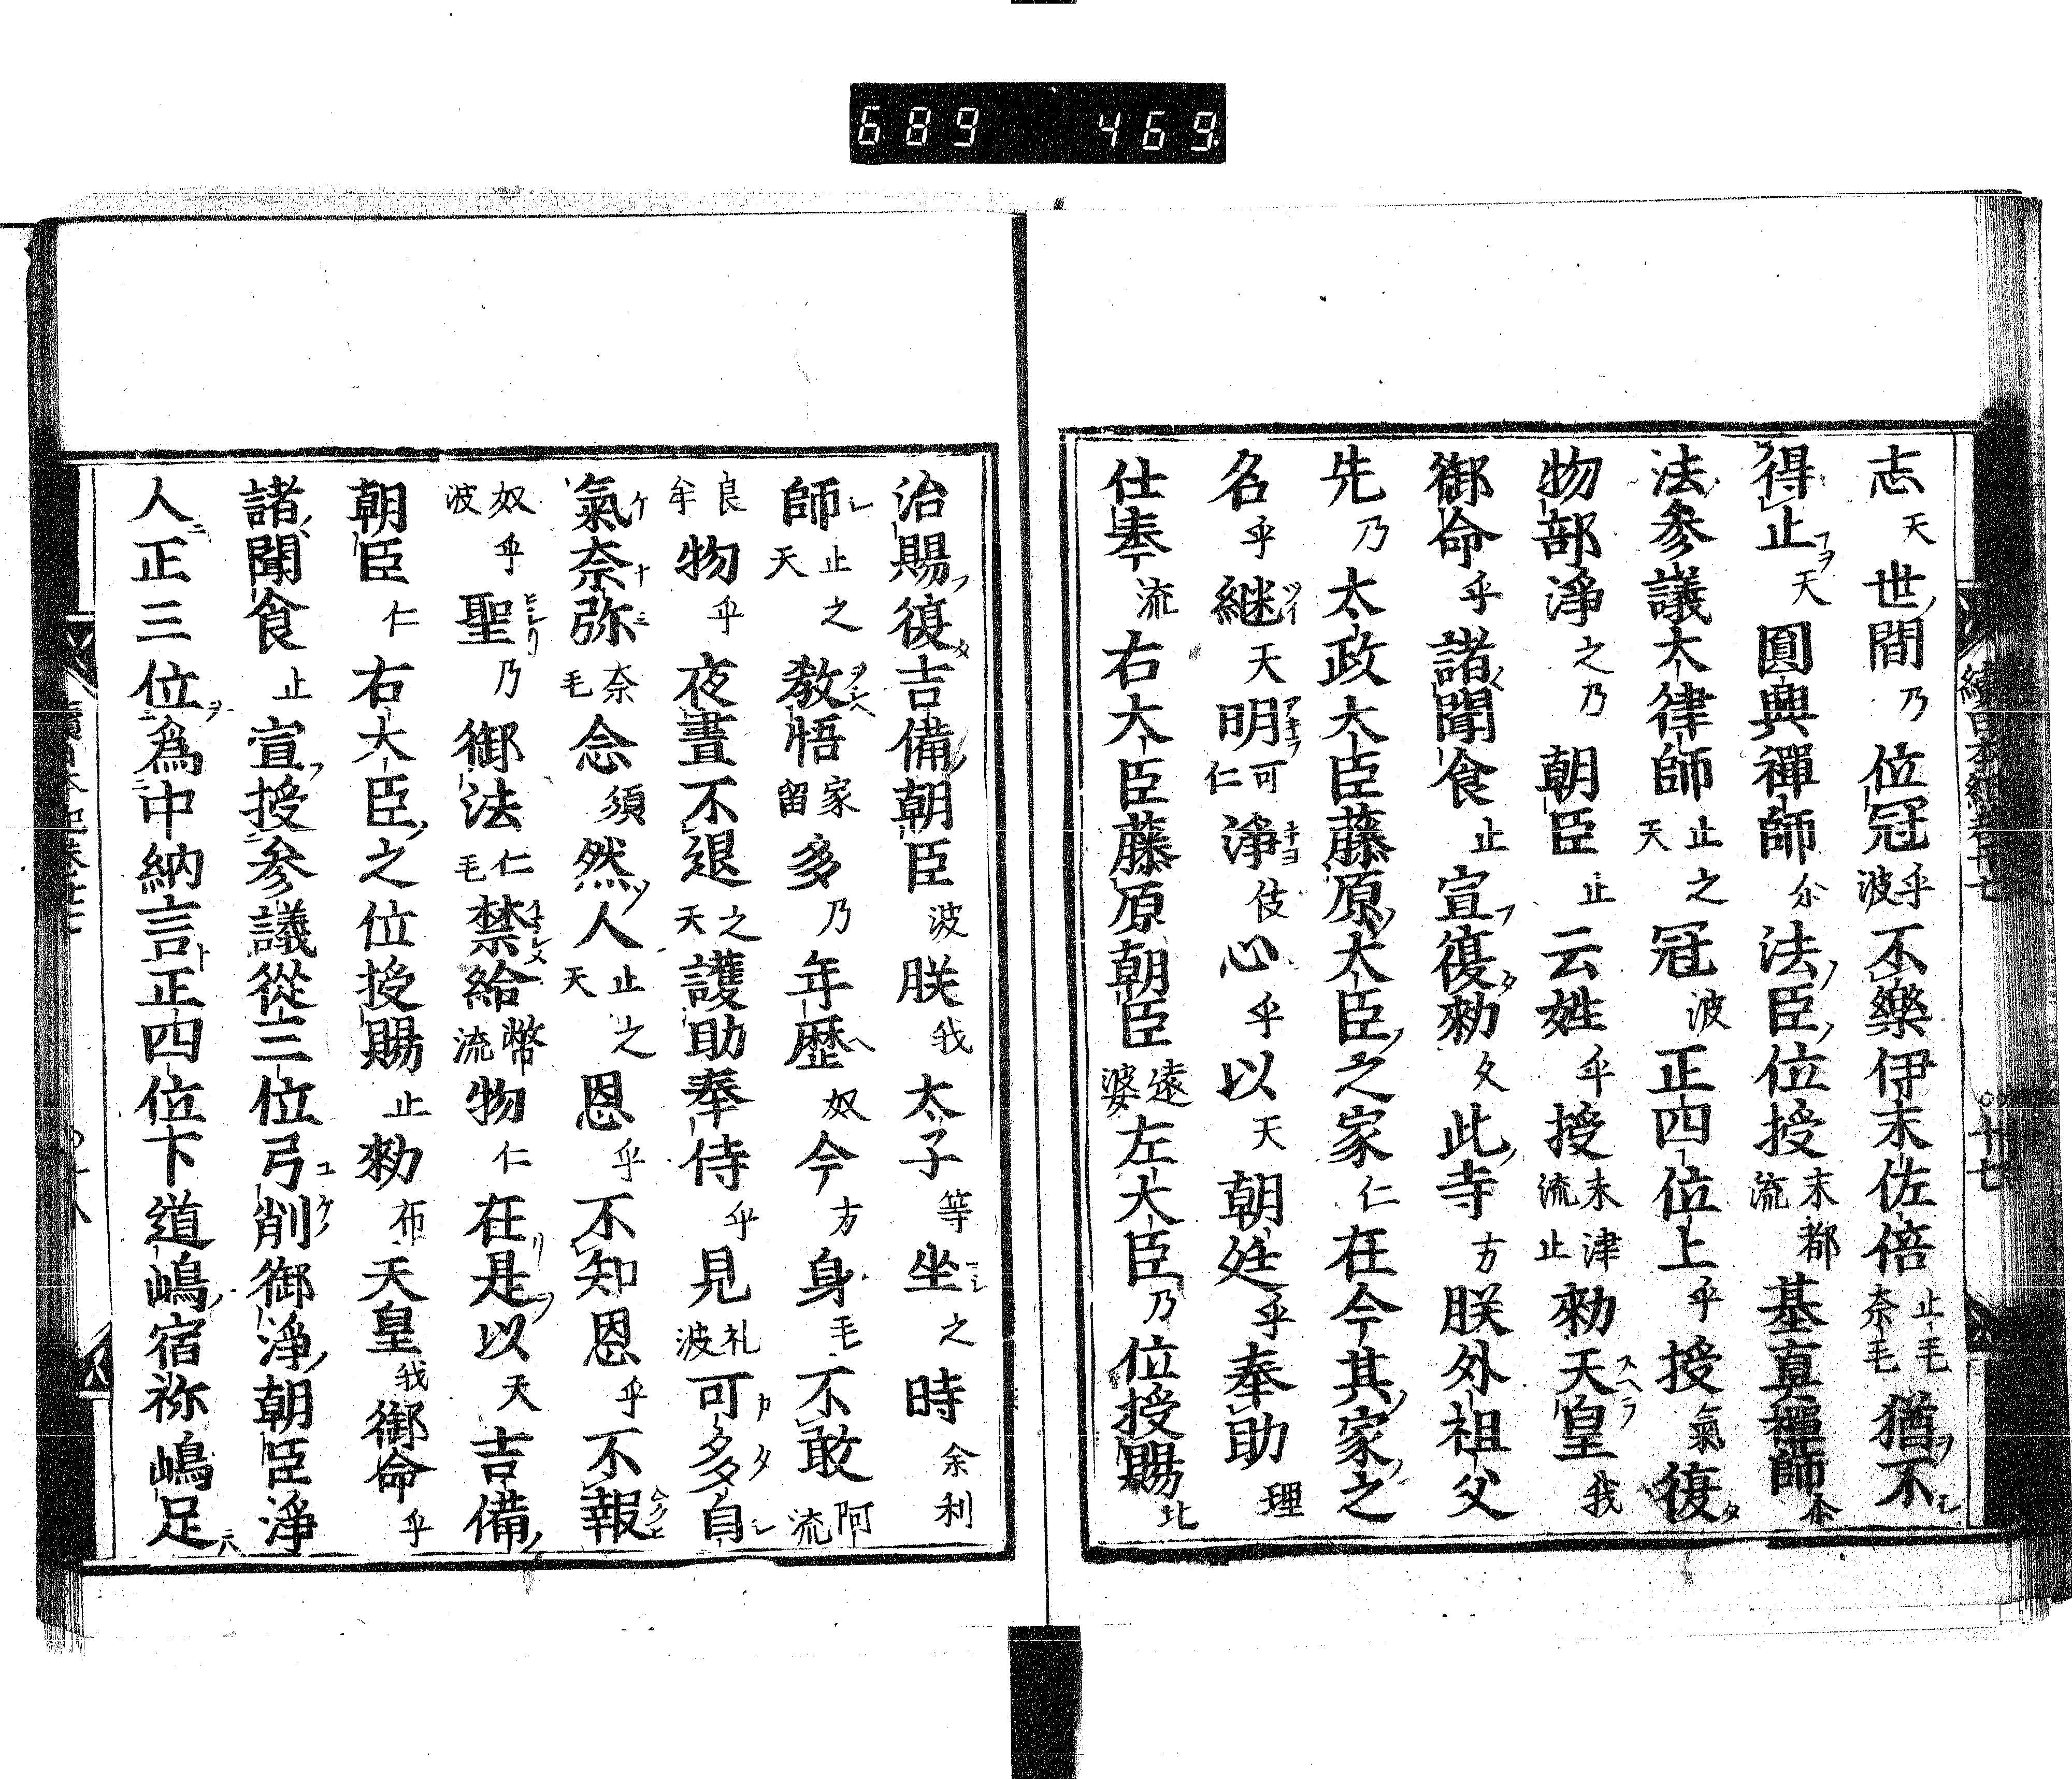 689 469
志天世間乃位冠乎波不樂伊末佐倍止毛奈毛猶不
得止天圓興禪師尒法臣位授末都流基真禪師尒
法參議大律師止之天冠波正四位上乎授氣復
物部淨之乃朝臣止云姓乎授末津流止勅天皇我
御命乎諸聞食止宣復勅久此寺方朕外祖父
先乃太政大臣藤原大臣之家仁在今其家之
名乎継天明可仁淨伎心乎以天朝廷乎奉助理
仕奉流右大臣藤原朝臣遠婆左大臣乃位授賜比
治賜復吉備朝臣波朕我太子等坐之時余利
師止之天教悟家留多乃年歴奴今方身毛不敢阿流
良牟物乎夜晝不退之天護助奉侍乎見礼波可多自
氣奈弥奈毛念須然人止之天恩乎不知恩乎不報
奴乎波聖乃御法仁毛禁給幣流物仁在是以天吉備
朝臣仁右大臣之位授賜止勅布天皇我御命乎
諸聞食止宣授參議從三位弓削御淨朝臣淨
人正三位爲中納言正四位下道嶋宿祢嶋足
續日本紀卷廿七
十七